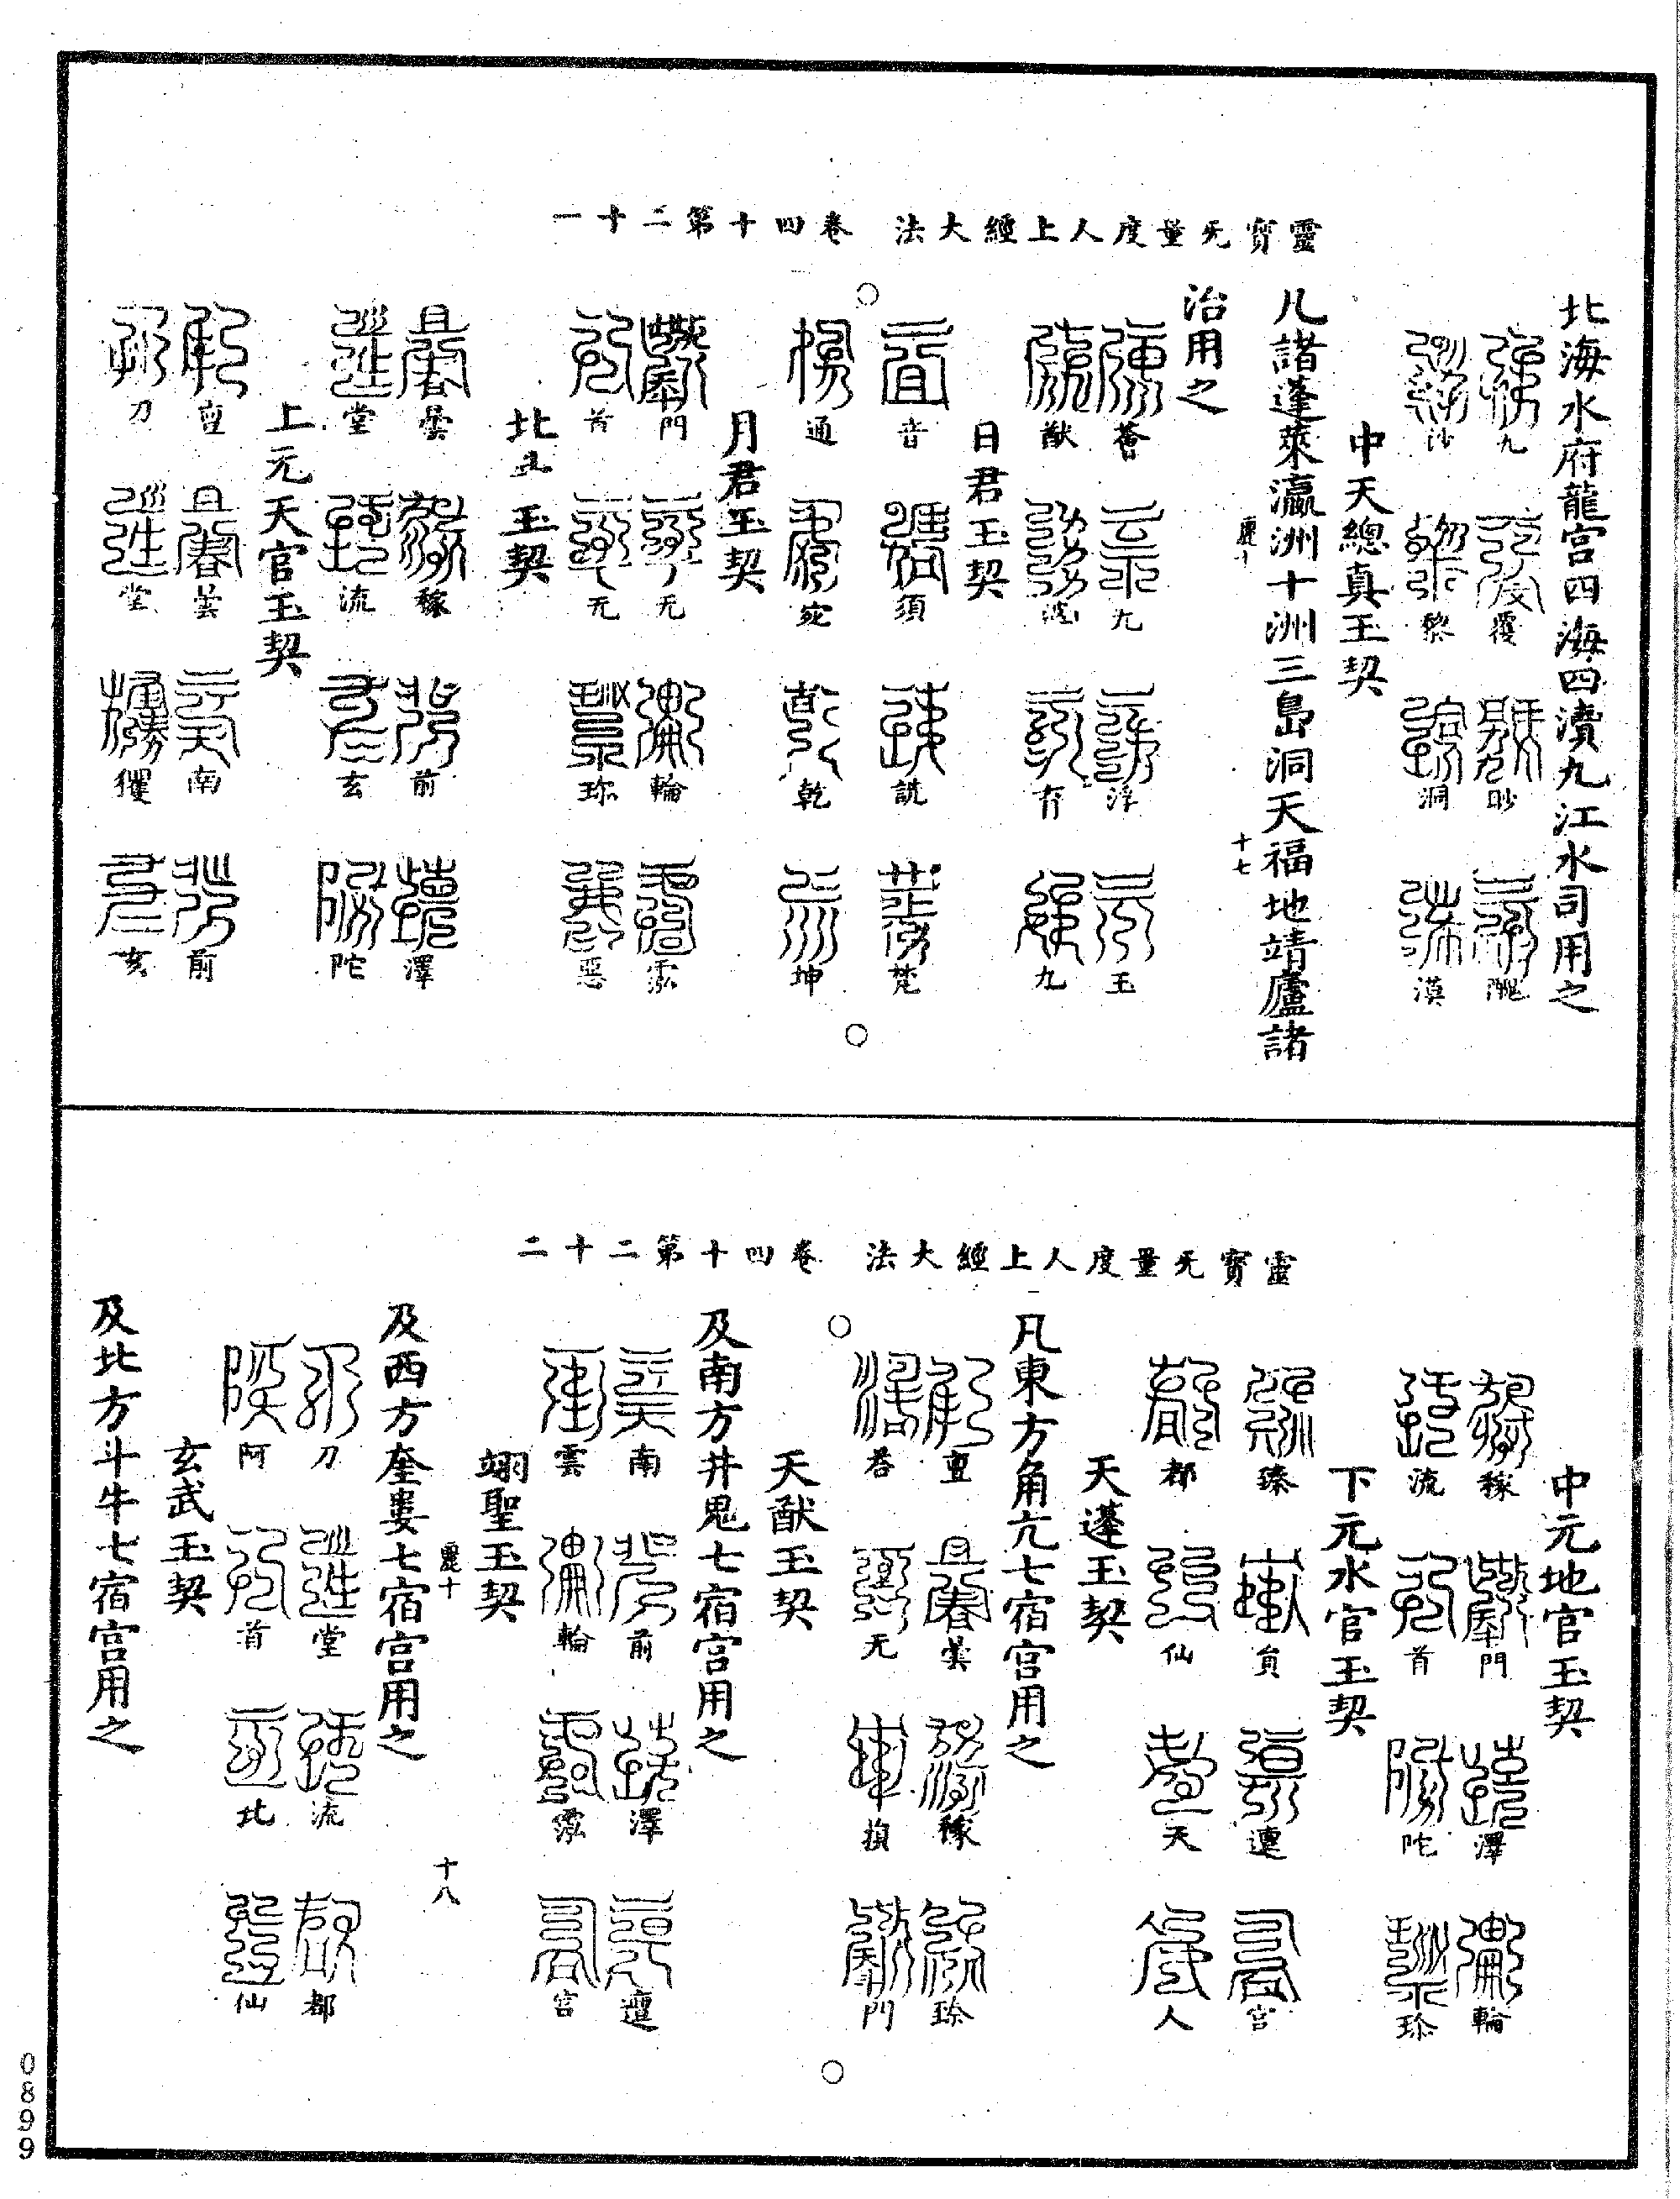 靈寳无量度人上經大法　卷四十第二十一
北海水府龍宫四海四瀆九江水司用之
九 覆 眇 醜
沙 黎 洞 漠
中天總真玉契
凡諸蓬萊瀛洲十洲三島洞天福地靖廬諸
麗十　十七
治用之
薈 九 浮 玉
猷 育 九
日君玉契
音 須 詵 梵
通 宛 乾 坤
月君玉契
門 无 輪 霐
首 无 珎 惡
北 玉契
曇 稼 前 澤
堂 流 玄 陀
上元天官玉契
亶 曇 南 前
刀 堂 玃 玄
靈寳无量度人上經大法　卷四十第二十二
中元地官玉契
稼 門 澤 輪
流 首 陀 珎
下元水官玉契
臻 負 遷 宫
都 仙 天 人
天蓬玉契
凡東方角亢七宿宫用之
亶 曇 稼 珎
荅 无 門
天猷玉契
及南方井鬼七宿宫用之
南 前 澤 邅
雲 輪 霐 宫
翊聖玉契
麗十　十八
及西方奎婁七宿宫用之
刀 堂 流 都
阿 首 北 仙
玄武玉契
及北方斗牛七宿宫用之
0899